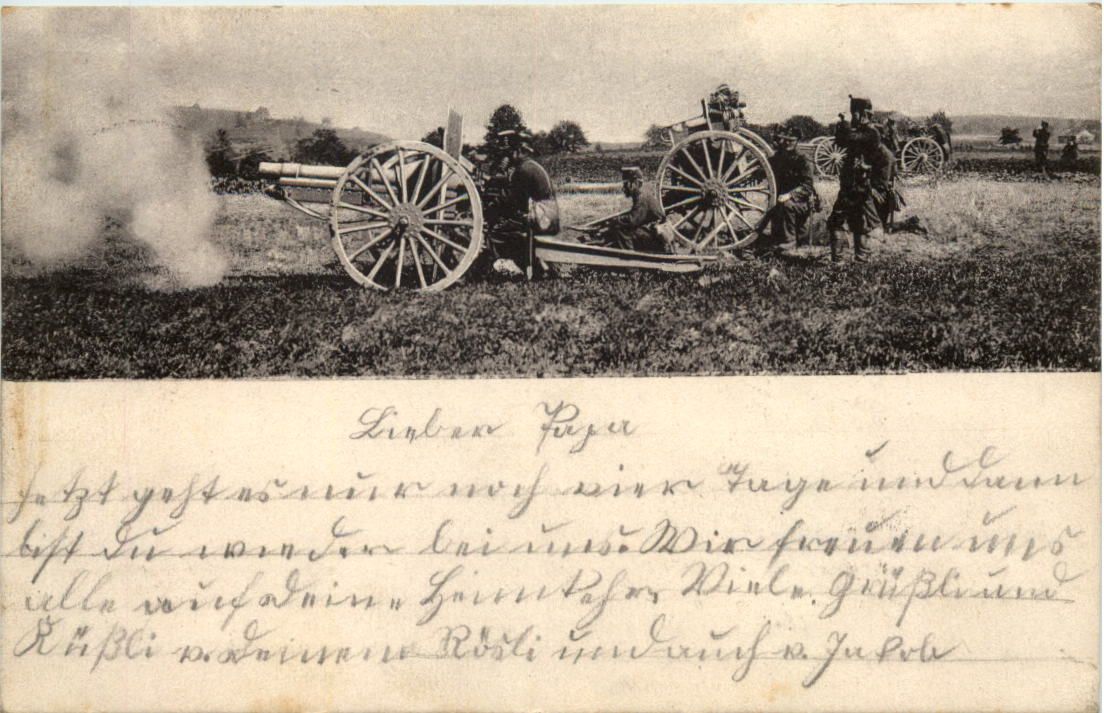 Lieber Papa
Jetzt geht es nur noch vier Tage und dann
bist Du wieder bei uns. Wir freuen uns
alle auf Deine Heimkehr. Viele Grüßli und
Küßli v. Deinem Rösli und auch v. Jakob